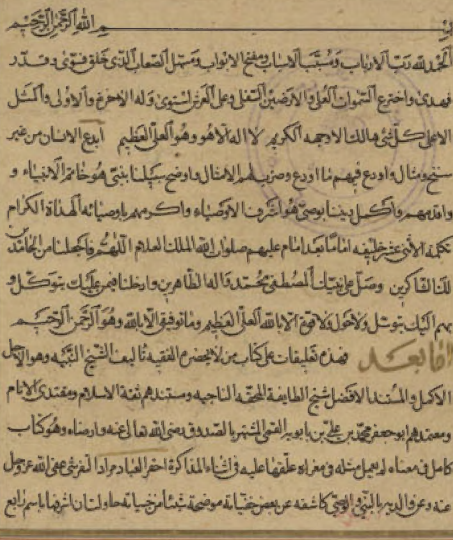 بسم الله الرحمن الرحيم
الحمد لله رب الارباب ومسبب الاسباب ومفتح الابواب ومسهل الصعاب الذي خلق فسوى وقدر
فهدى واخترع السموات العلى والارضين السفلى وعلى العرش استوى وله الاخرة والاولى والمثل
الاعلى كل شئ هالك الا وجهه الكريم لا اله الا هو وهو العلي العظيم ابدع الانسان من غير
سنخ ومثال واودع فيهم ما اودع وضرب لهم الامثال واوضح سبيلنا بنبي هو خاتم الانبياء و
واقدمهم واكمل ديننا بوصي هو اشرف الاوصياء واكرمهم باوصيائه الهداة الكرام
تكملة الاثني عشر خليفه اماما بعد امام عليهم صلوات الله الملك العلام اللهم فاجعلنا من الحامدين
لك الشاكرين وصل على نبيك المصطفى محمد واله الطاهرين وادخلنا فيمن عليك يتوكل و
بهم اليك يتوسل ولا حول ولا قوة الا بالله العلي العظيم وما توفيق الا بالله وهو الرحمن الرحيم
اما بعد فهذه تعليقات على كتاب من لا يحضره الفقيه تاليف الشيخ النبيه وهو الاجل
الاكمل والمستند الافضل شيخ الطايفة المحقه الناجيه ومستندهم ثقة الاسلام ومقتدى الانام
ومعتمدهم ابو جعفر محمد بن علي بن بابويه القمي الشهير بالصدوق رضي الله تعالى عنه وارضاه وهو كتاب
كامل في معناه لم يعمل مثله في مغزاه علقها عليه في اثناء المذاكرة احقر العباد مراد التفرشي عفى الله عز وجل
عنه وعن والديه بالنبي والوصي كاشفه عن بعض خفياته موضحة شيئا من خبياته حاولت ان اشرفها باسم رابع